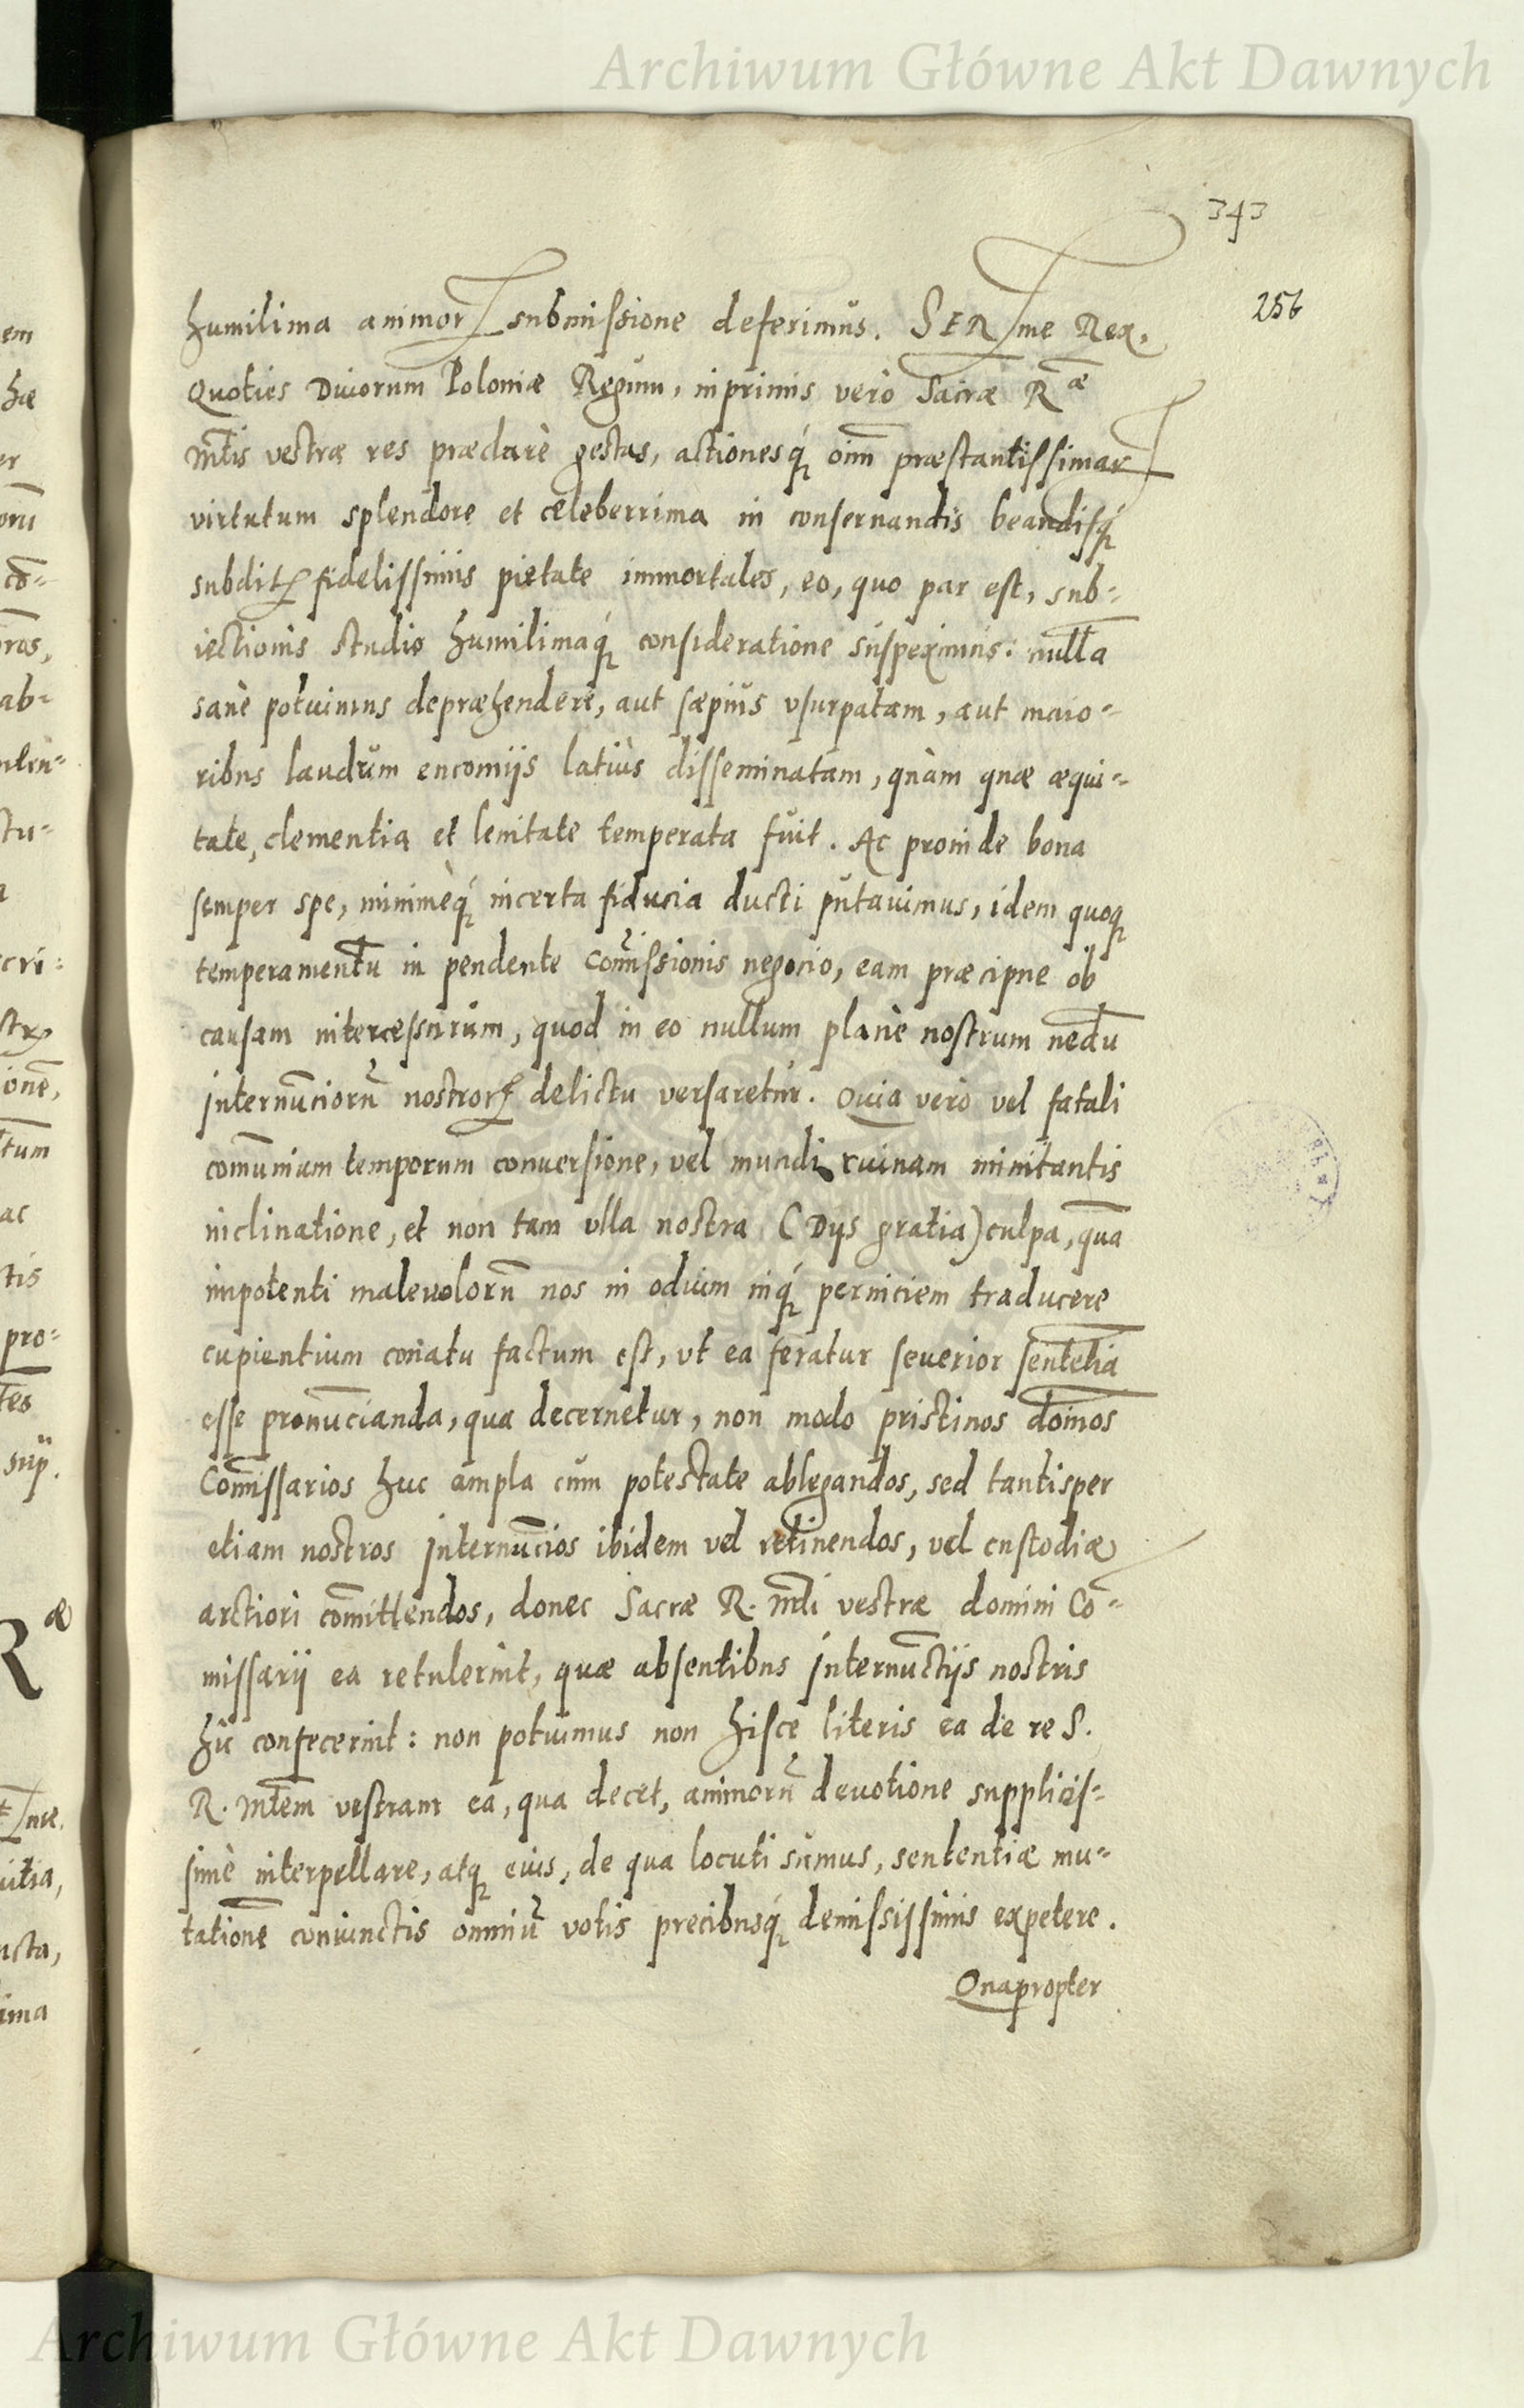 Archiwum Główne Akt Dawnych
343
256
humilima animorꝝ submissione deferimus. SERme Rex,
Quoties Diuorum Poloniæ Regum, inprimis verò Sacræ Rᵃᵉ
Mtis vestræ res præclarè gestas, actionesq́ꝫ oim̄ præstantissimarꝝ
virtutum splendore et celeberrima in conseruandis beandisq́ꝫ
subditꝭ fidelissimis pietate immortales, eo, quo par est, sub-
iectionis studio humilimaq́ꝫ consideratione suspeximus: nulla
sanè potuimus depræhendere, aut sæpius vsurpatam, aut maio-
ribus laudum encomijs latiùs disseminatam, quàm quæ æqui-
tate, clementia et lenitate temperata fuit. Ac proinde bona
semper spe, minimèq́ꝫ incerta fiducia ducti putauimus, idem quoqꝫ
temperamentū in pendente Com̄issionis negocio, eam præcipue ob
causam intercessurum, quod in eo nullum planè nostrum nedū
internūciorū nostrorꝝ delictū versaretur. Quia verò vel fatali
com̄unium temporum conuersione, vel mundi ruinam minitantis
inclinatione, et non tam vlla nostra (Dijs gratia) culpa, quā
impotenti maleuolorū nos in odium inq́ꝫ perniciem traducere
cupientium conatu factum est, vt ea feratur seuerior sentētia
esse pronūcianda, qua decernetur, non modo pristinos dominos
Com̄issarios huc ampla cum potestate ablegandos, sed tantisper
etiam nostros internūcios ibidem vel retinendos, vel custodiæ
arctiori com̄ittendos, donec Sacræ R. Mti vestræ domini Co-
missarij ea retulerint, quæ absentibus internūctijs nostris
hic confecerint: non potuimus non hisce literis ea de re S.
R. Mtem vestram ea, qua decet, animorū deuotione supplicis-
simè interpellare, atqꝫ eius, de qua locuti sumus, sententiæ mu-
tationē coniunctis omniū votis precibusq́ꝫ demississimis expetere.
Quapropter
Archiwum Główne Akt Dawnych